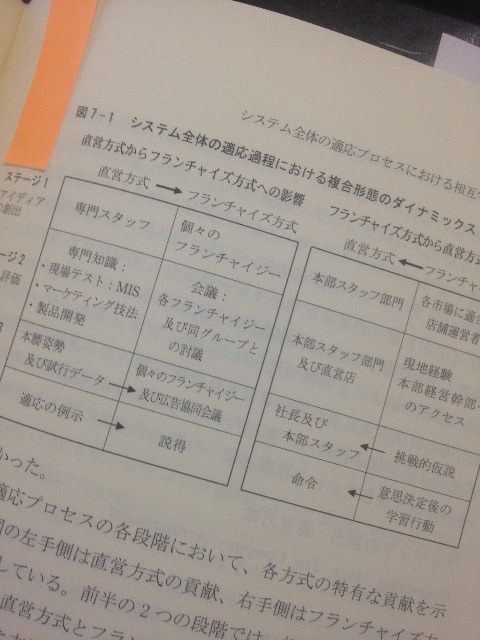 システム全体の適応プロセスにおける相互
図7-1 システム全体の適応過程における複合形態のダイナミックス
直営方式からフランチャイズ方式への影響
フランチャイズ方式から直営方式
直営方式 → フランチャイズ方式
直営方式 ← フランチャ
ステージ1
アイディア
の創出
専門スタッフ
個々の
フランチャイジー
本部スタッフ部門
各市場に適
店舗運営者
ージ2
評価
専門知識:
・現場テスト:MIS
・マーケティング技法
・製品開発
会議:
各フランチャイジー
及び同グループと
の討議
本部スタッフ部門
及び直営店
現地経験
本部経営幹部
のアクセス
3
本腰姿勢
及び試行データ →
個々のフランチャイジー
及び広告協同会議
社長及び
本部スタッフ
← 挑戦的仮説
適応の例示 →
説得
命令
← 意思決定後の
学習行動
かった。
適応プロセスの各段階において、各方式の特有な貢献を示
の左手側は直営方式の貢献、右手側はフランチャイズ
している。前半の2つの段階では
直営方式とフラン